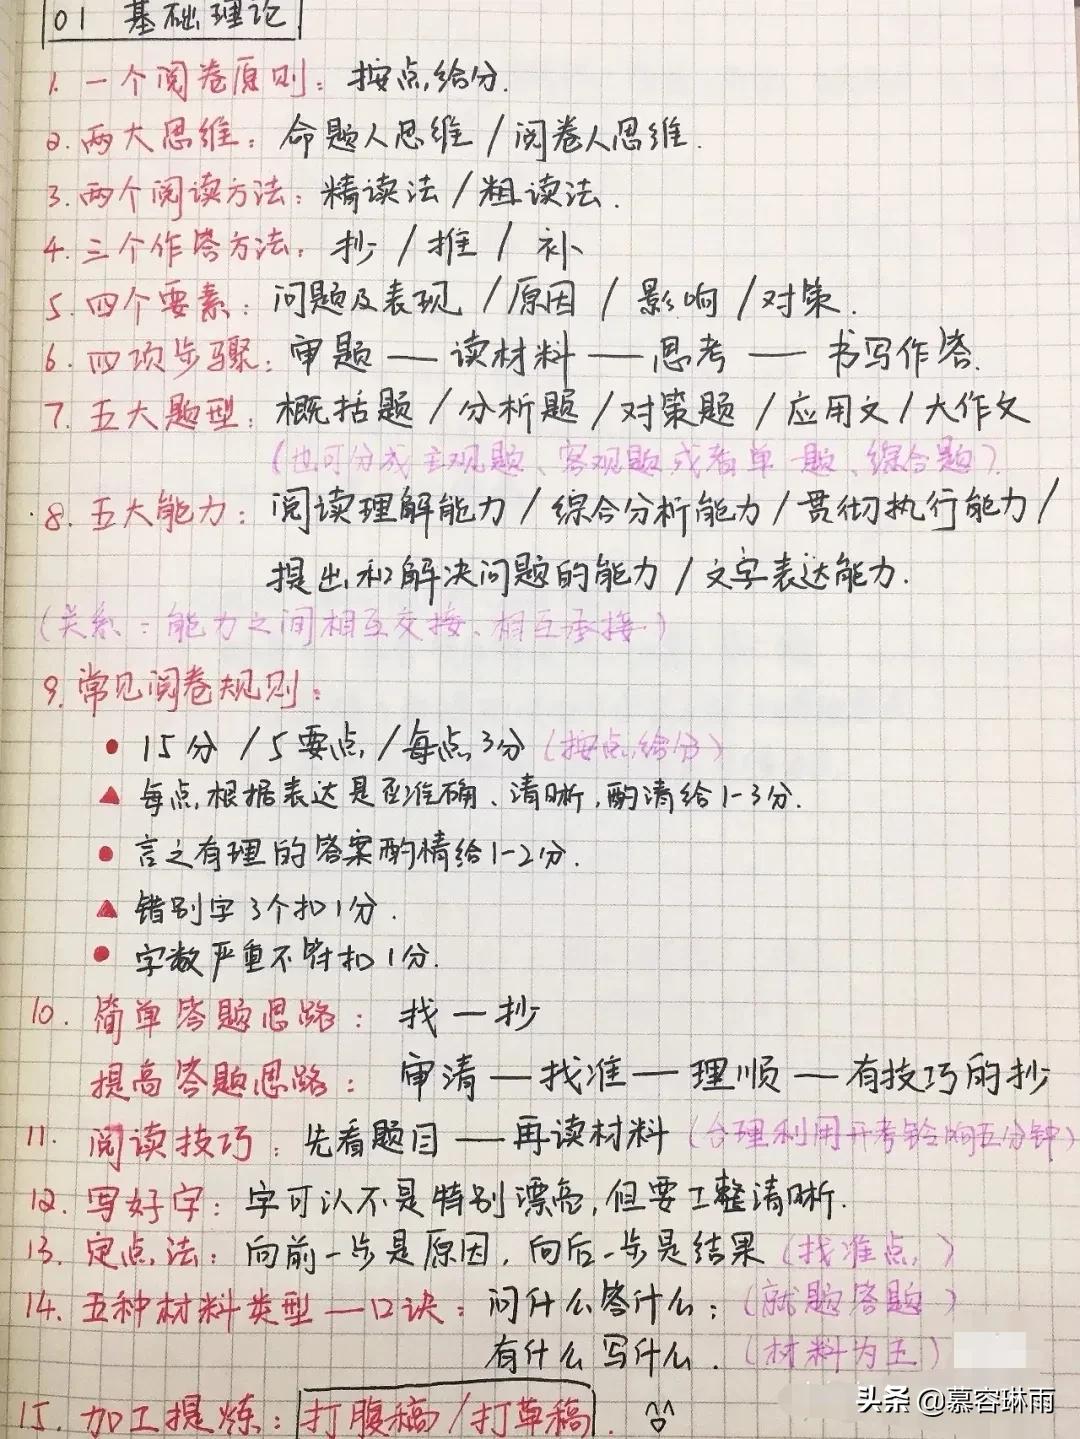 01 基础理论
1. 一个阅卷原则：按点给分.
2. 两大思维：命题人思维 / 阅卷人思维.
3. 两个阅读方法：精读法 / 粗读法.
4. 三个作答方法：抄 / 推 / 补
5. 四个要素：问题及表现 / 原因 / 影响 / 对策.
6. 四项步骤：审题 — 读材料 — 思考 — 书写作答.
7. 五大题型：概括题 / 分析题 / 对策题 / 应用文 / 大作文
(也可分成主观题、客观题或者单一题、综合题)
8. 五大能力：阅读理解能力 / 综合分析能力 / 贯彻执行能力 /
提出和解决问题的能力 / 文字表达能力.
(关系：能力之间相互交接、相互承接)
9. 常见阅卷规则：
● 15分 / 5要点 / 每点3分 (按点给分)
▲ 每点根据表达是否准确、清晰,酌清给1-3分.
● 言之有理的答案酌情给1-2分.
▲ 错别字3个扣1分.
● 字数严重不符扣1分.
10. 简单答题思路：找 — 抄
提高答题思路：审清 — 找准 — 理顺 — 有技巧的抄
11. 阅读技巧：先看题目 — 再读材料 (合理利用开考铃响五分钟)
12. 写好字：字可以不是特别漂亮,但要工整清晰.
13. 定点法：向前一步是原因, 向后一步是结果 (找准点)
14. 五种材料类型 — 口诀：问什么答什么；(就题答题)
有什么写什么. (材料为王)
15. 加工提炼：打腹稿 / 打草稿.
头条 @慕容琳雨